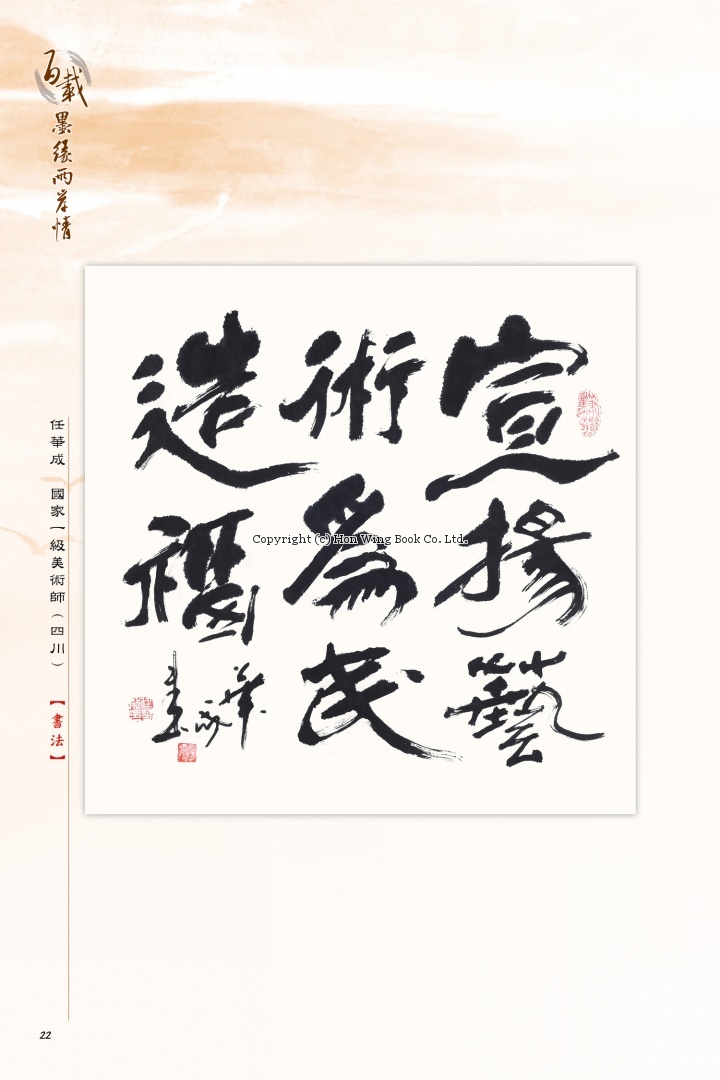 百載
墨緣兩岸情
宣揚藝
術為民
造福
華成書
Copyright (c) Hon Wing Book Co. Ltd.
任華成 國家一級美術師（四川）
【書法】
22